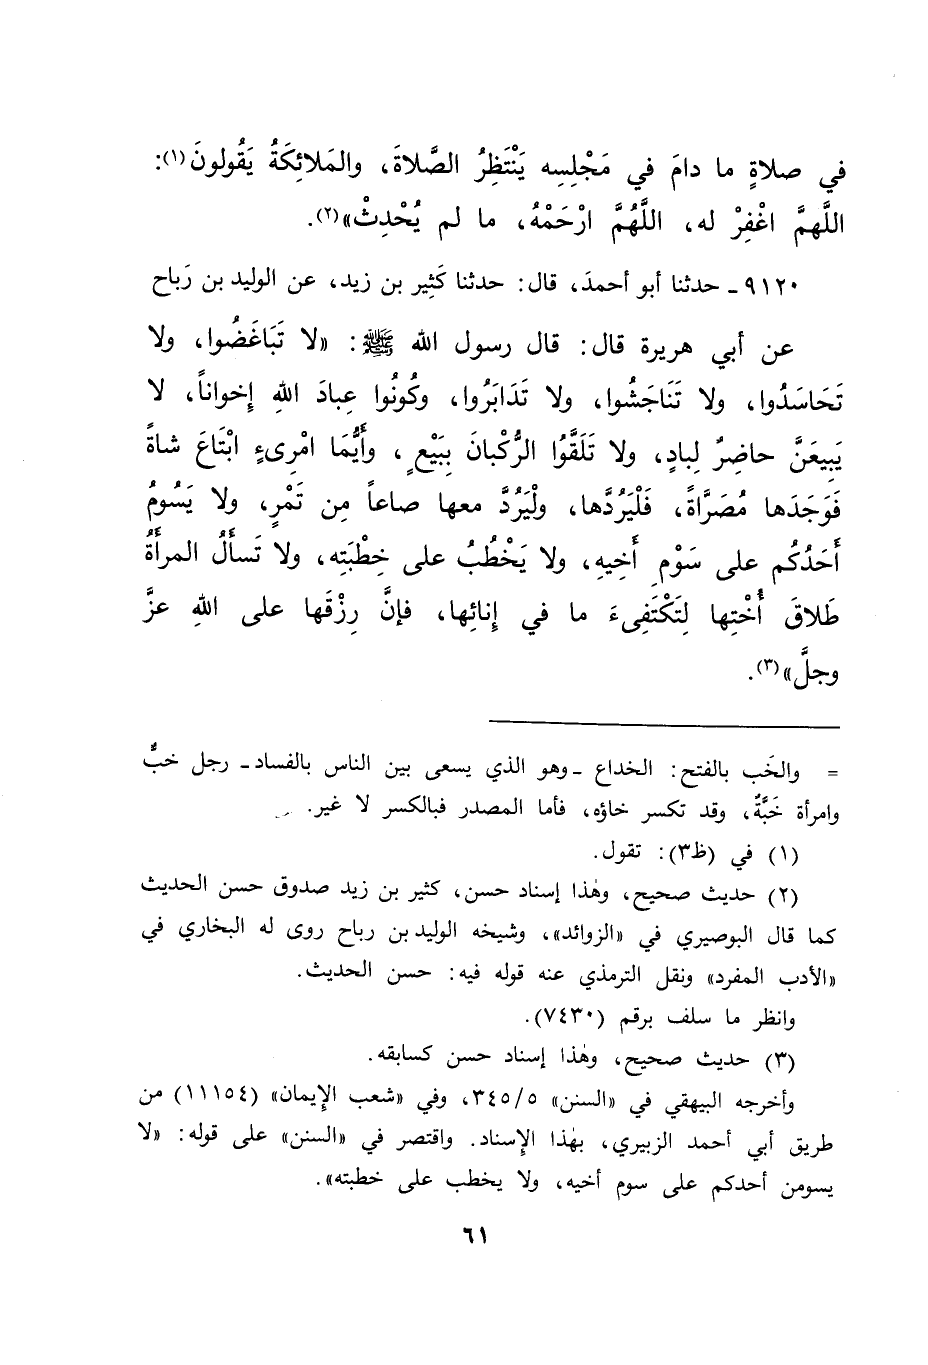 في صلاةٍ ما دامَ في مَجْلِسِه يَنْتَظِرُ الصَّلاةَ، والمَلائِكَةُ يَقُولونَ(١):
اللَّهمَّ اغْفِرْ له، اللَّهُمَّ ارْحَمْهُ، ما لم يُحْدِثْ»(٢).
٩١٢٠ـ حدثنا أبو أحمدَ، قال: حدثنا كَثِير بن زيد، عن الوليد بن رَباح
عن أبي هريرة قال: قال رسول الله ﷺ: «لا تَبَاغَضُوا، ولا
تَحَاسَدُوا، ولا تَنَاجَشُوا، ولا تَدَابَرُوا، وكُونُوا عِبادَ اللهِ إخواناً، لا
يَبِيعَنَّ حاضِرٌ لِبادٍ، ولا تَلَقَّوُا الرُّكْبانَ بِبَيْعٍ، وأَيُّمَا امْرِىءٍ ابْتَاعَ شاةً
فَوَجَدَها مُصَرَّاةً، فَلْيَرُدَّها، ولْيَرُدَّ معها صاعاً مِن تَمْرٍ، ولا يَسُومُ
أَحَدُكُم على سَوْمِ أَخِيهِ، ولا يَخْطُبُ على خِطْبَتِه، ولا تَسأَلُ المرأَةُ
طَلاقَ أُخْتِها لِتَكْتَفِىءَ ما في إنائِها، فإنَّ رِزْقَها على اللهِ عزَّ
وجلَّ»(٣).
= والخَب بالفتح: الخداع ـوهو الذي يسعى بين الناس بالفسادـ رجل خبٌّ
وامرأة خَبَّةٌ، وقد تكسر خاؤه، فأما المصدر فبالكسر لا غير.
(١) في (ظ٣): تقول.
(٢) حديث صحيح، وهٰذا إسناد حسن، كثير بن زيد صدوق حسن الحديث
كما قال البوصيري في «الزوائد»، وشيخه الوليد بن رباح روى له البخاري في
«الأدب المفرد» ونقل الترمذي عنه قوله فيه: حسن الحديث.
وانظر ما سلف برقم (٧٤٣٠).
(٣) حديث صحيح، وهٰذا إسناد حسن كسابقه.
وأخرجه البيهقي في «السنن» ٣٤٥/٥، وفي «شعب الإيمان» (١١١٥٤) من
طريق أبي أحمد الزبيري، بهٰذا الإسناد. واقتصر في «السنن» على قوله: «لا
يسومن أحدكم على سوم أخيه، ولا يخطب على خطبته».
٦١